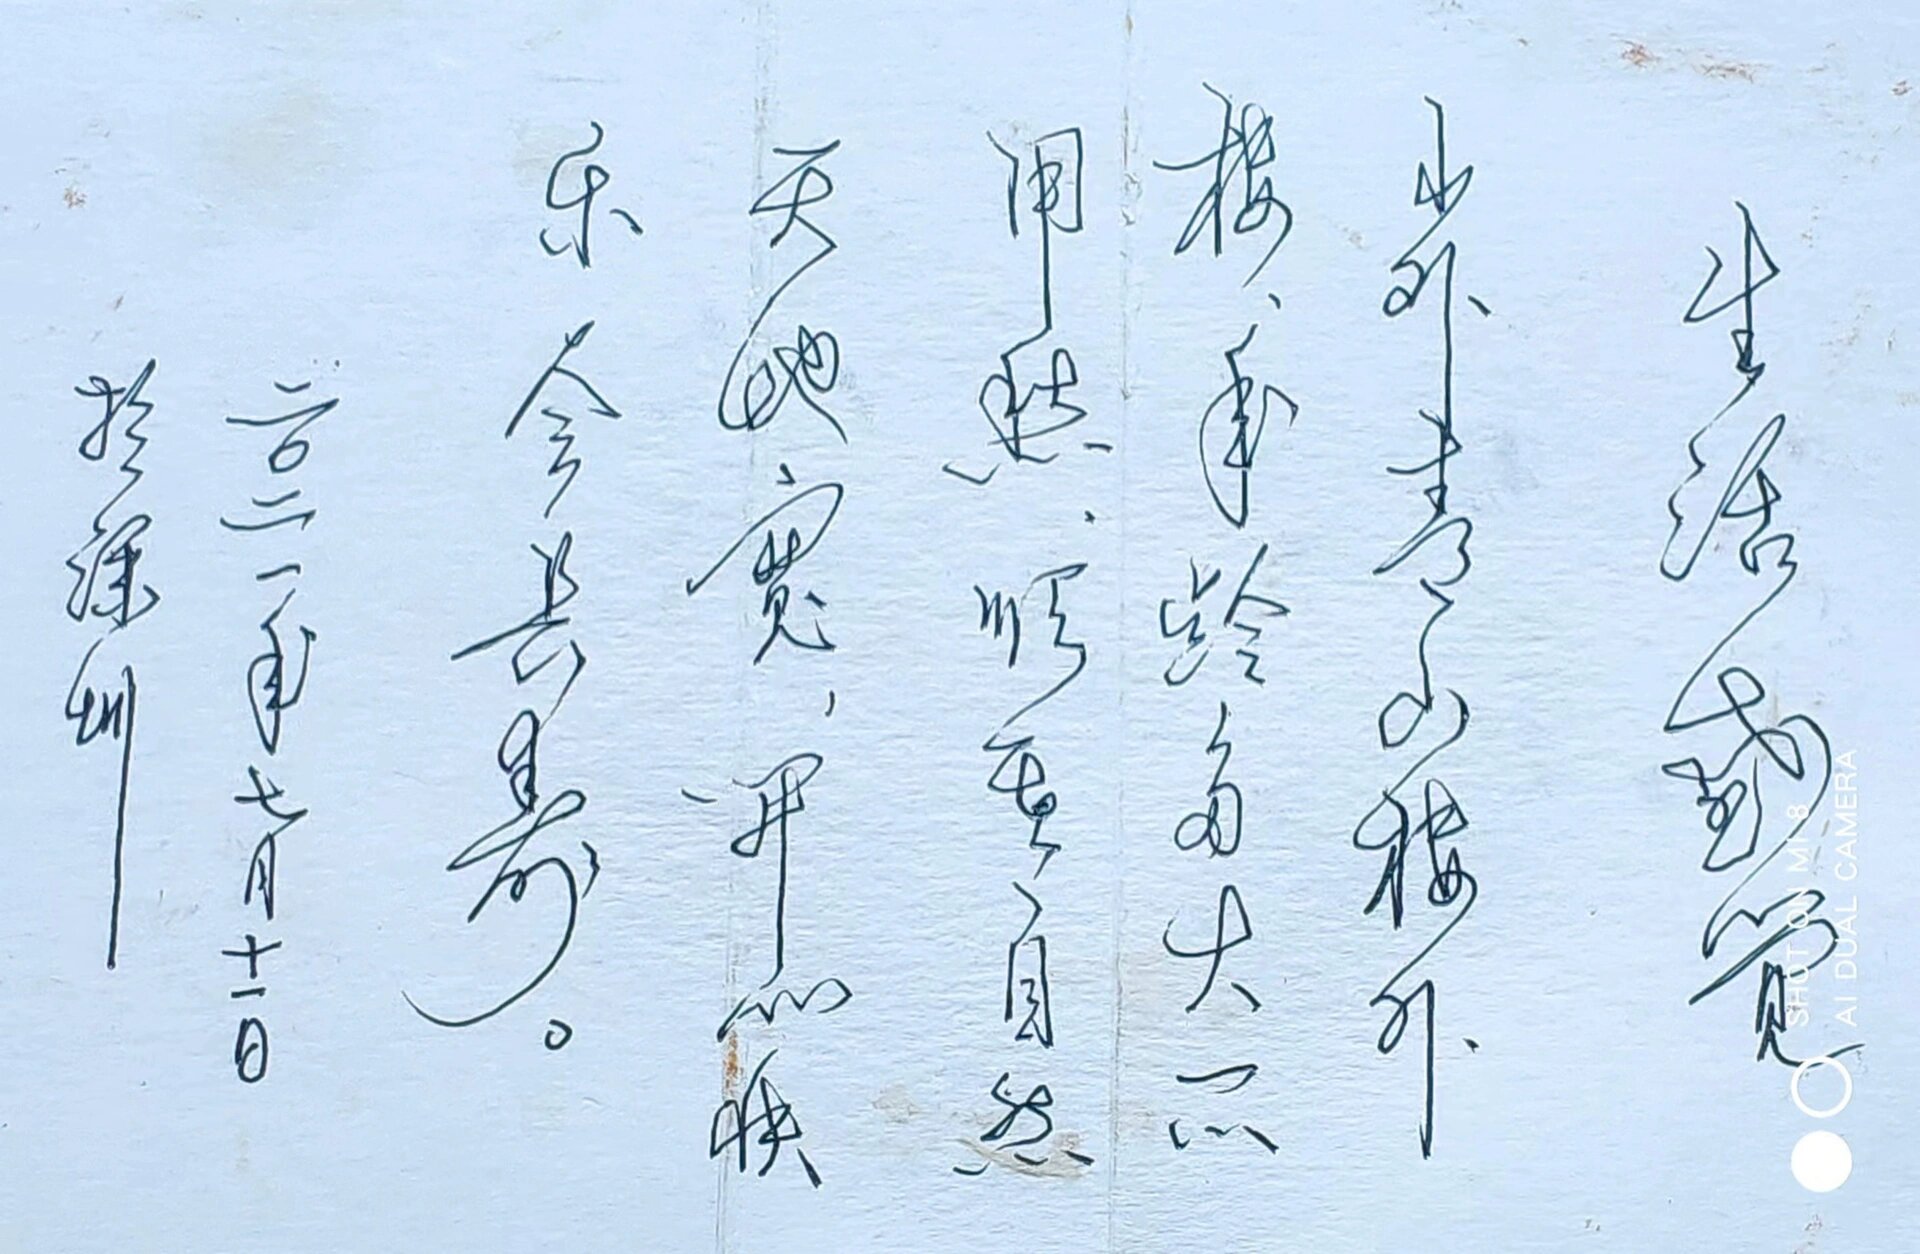 生活感觉
山外青山楼外
楼、年龄多大不
用愁、顺其自然
天地宽、开心快
乐会长寿。
二0二一年七月十一日
于深圳
SHOT ON MI 8
AI DUAL CAMERA